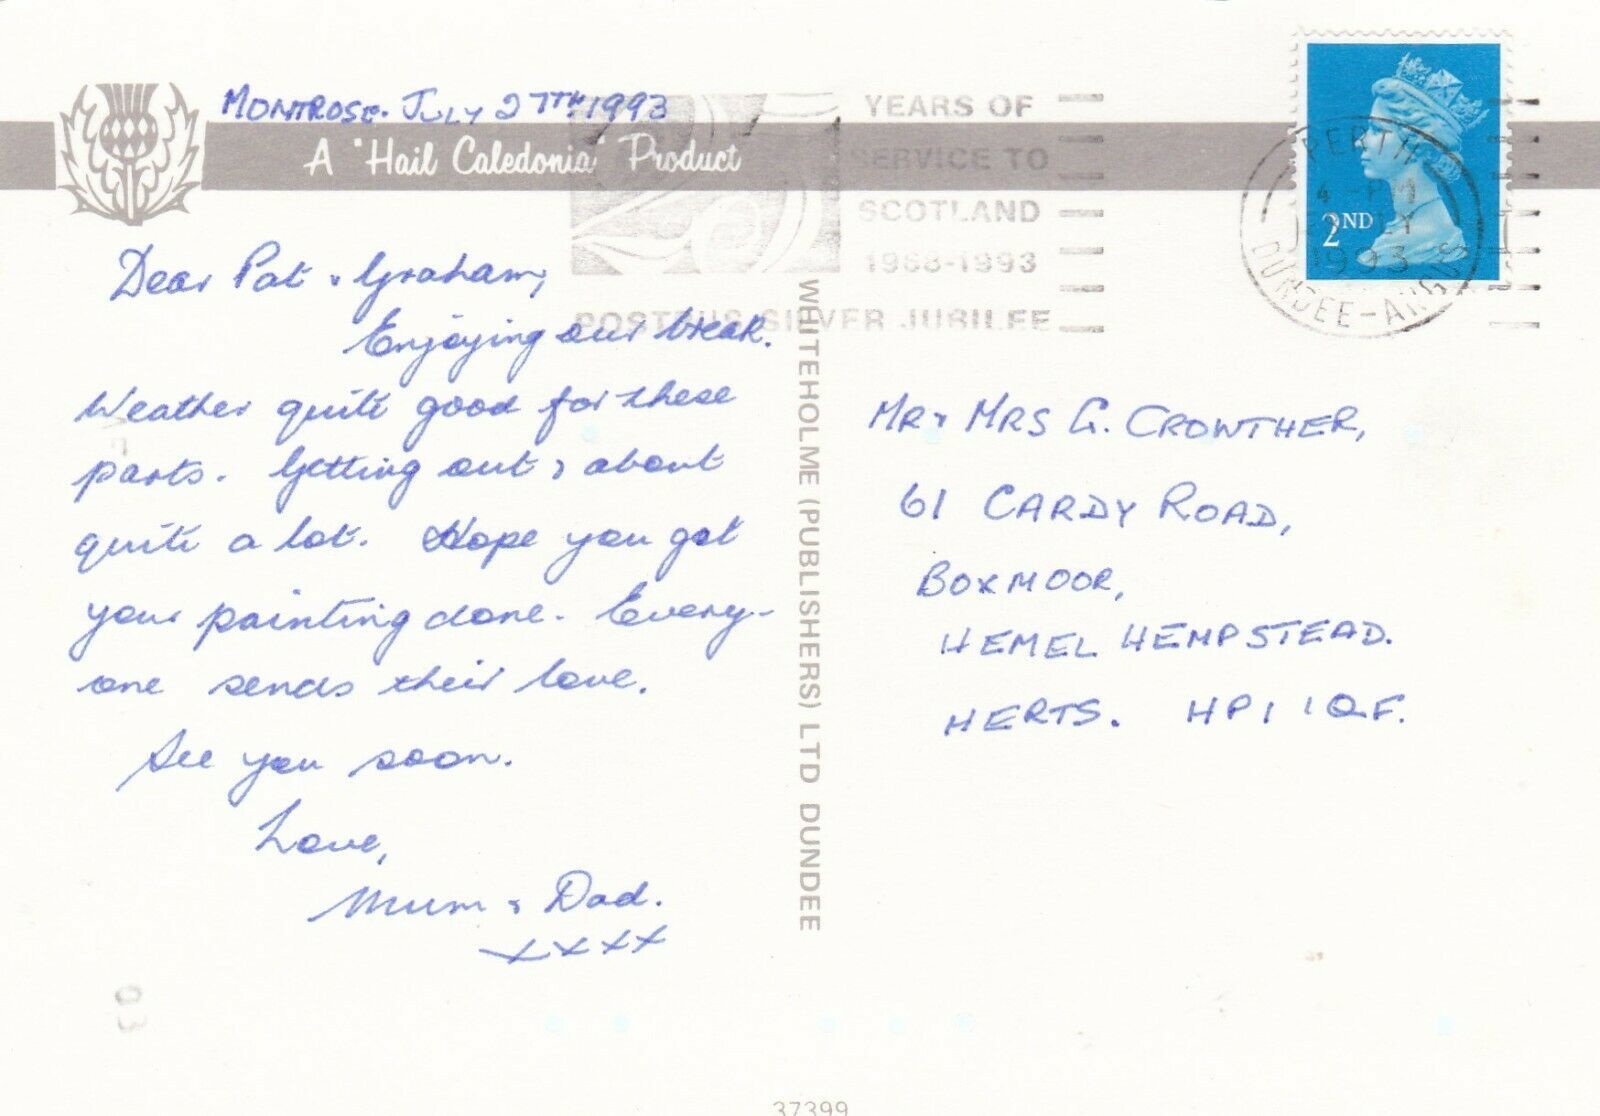 MONTROSE. JULY 27TH. 1993
A "Hail Caledonia" Product
Dear Pat & Graham,
Enjoying our break.
Weather quite good for these
parts. Getting out & about
quite a lot. Hope you got
your painting done. Every-
one sends their love.
See you soon.
Love,
Mum & Dad.
xxxx
WHITEHOLME (PUBLISHERS) LTD DUNDEE
25
YEARS OF
SERVICE TO
SCOTLAND
1968-1993
POSTBUS SILVER JUBILEE
2ND
PERTH
4 -PM
JLY
1993
DUNDEE-ANGUS
MR & MRS G. CROWTHER,
61 CARDY ROAD,
BOXMOOR,
HEMEL HEMPSTEAD.
HERTS. HP1 1QF.
03
37399